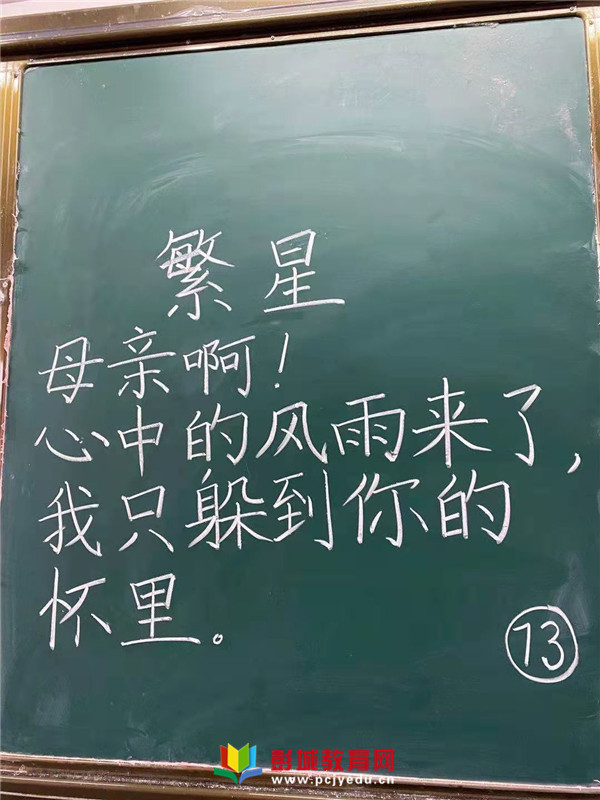 繁星
母亲啊！
心中的风雨来了，
我只躲到你的
怀里。
13
彭城教育网
www.pcjyedu.cn